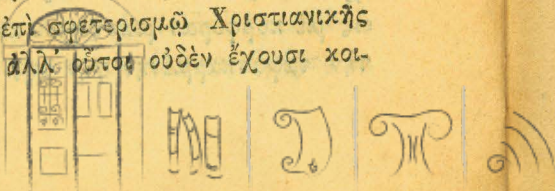 ἐπὶ σφετερισμῷ Χριστιανικῆς
ἀλλ' οὗτοι οὐδὲν ἔχουσι κοι-